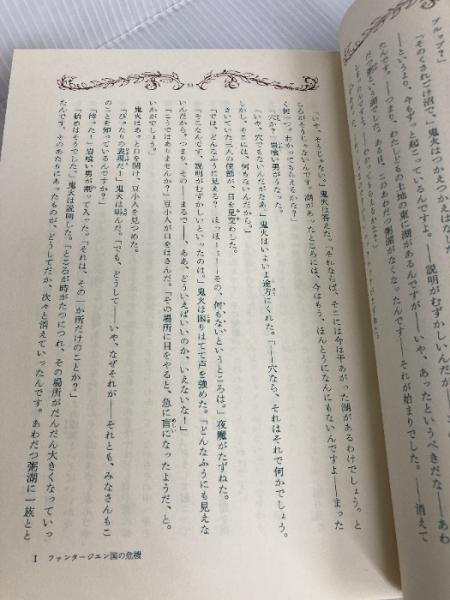 プルップ？」
「そのくされごけ沼で、」鬼火はつかえつかえはな
——というより、今もずっと起こっているんですよ。——説明がむずかしいんだが
——つまり、わたしどもの土地の東に湖があるんですが——いや、あったというべきだな——あわ
そのあわだつ粥湖がなくなったんです——それが始まりでした。——消えて
53
「いや、そうじゃない。」鬼火は答えた。「それならば、そこには今は干あがった湖があるわけでしょう。と
ころがそうじゃないんです。湖があったところには、今はもう、ほんとうになんにもないんですよ——まった
く何一つ。わかってもらえるかな？」
「穴か？」岩喰い男がうなった。
「いや、穴でもないんだがなあ。」鬼火はいよいよ途方にくれた。「——穴なら、それはそれで何かでしょう。
しかし、そこには、何もないんだから。」
きいていた三人の使者が、目を見交わした。
「では、どんなふうに見える？ ほっほー——その、何もないというところは。」夜魔がたずねた。
「そこなんです、説明がむずかしいといったのは。」鬼火は困りはてて声を強めた。「どんなふうにも見えな
いんだから。つまり、まるで——ああ、どういえばいいのか、いえないな！」
「こうではありませんか？」豆小人が口をはさんだ。「その場所に目をやると、急に盲になったようだ、と。
いかがでしょう。」
鬼火はあっと口を開け、豆小人を見つめた。
「ぴったりの表現だ！」鬼火は叫んだ。「でも、どうして——いや、なぜそれが——それとも、みなさんもこ
のことを知っているんですか？」
「待った！」岩喰い男が割って入った。「それは、その一か所だけのことか？」
「始めはそうでした。」鬼火は説明した。「ところが時がたつにつれ、その場所がだんだん大きくなっていっ
たんです。そのあたりにあったものが、どうしてだか、次々と消えていったんです。あわだつ粥湖に一族とと
I ファンタージエン国の危機